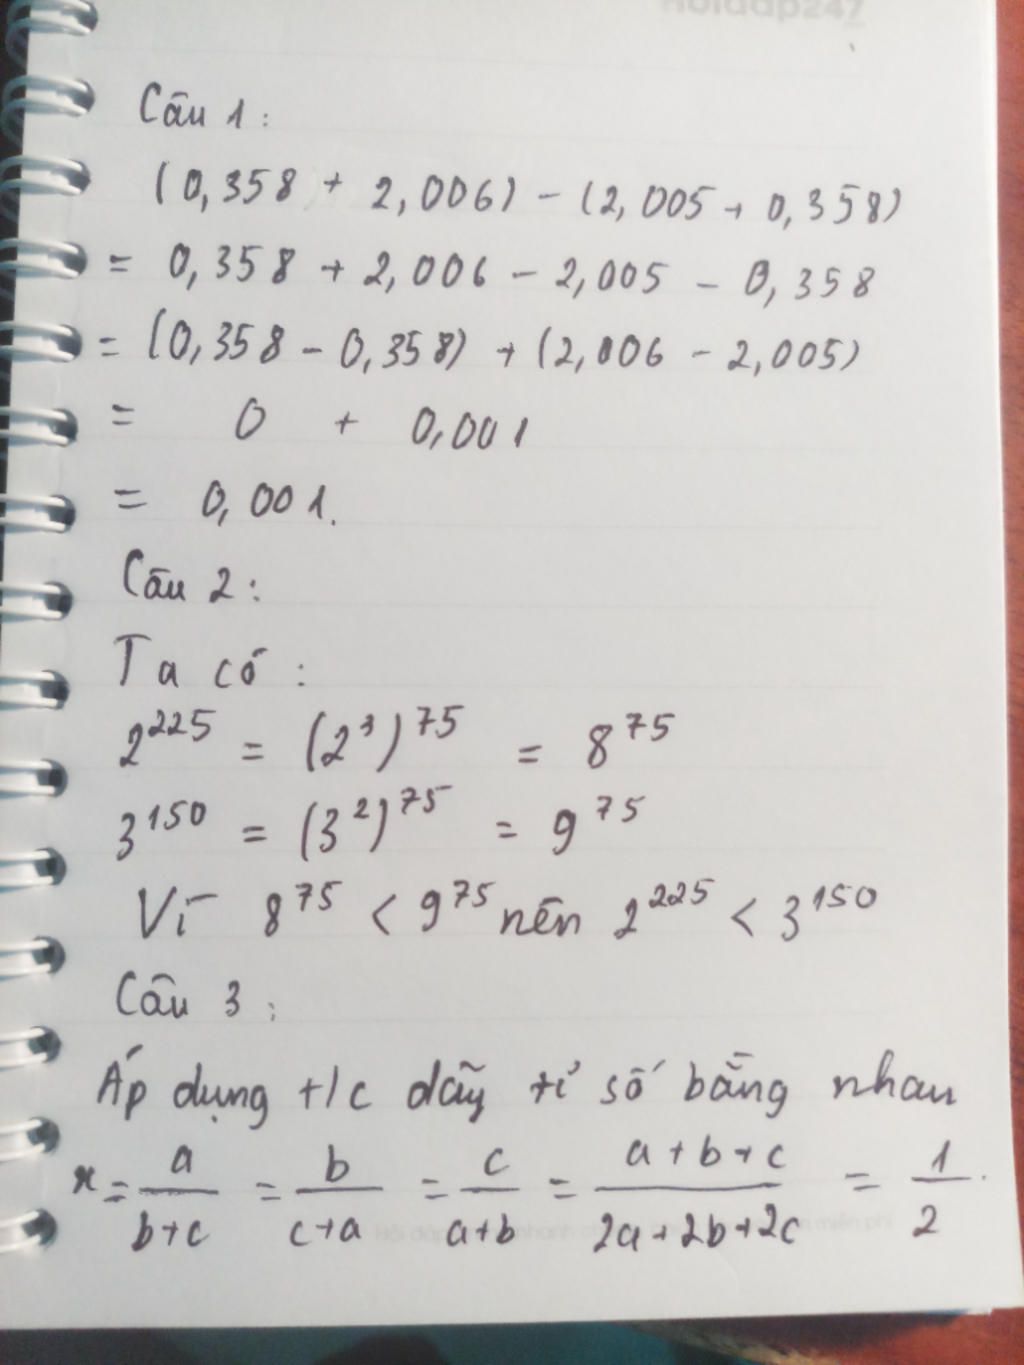 hoidap247
Câu 1:
(0,358 + 2,006) - (2,005 + 0,358)
= 0,358 + 2,006 - 2,005 - 0,358
= (0,358 - 0,358) + (2,006 - 2,005)
= 0 + 0,001
= 0,001.
Câu 2:
Ta có:
2²²⁵ = (2³)⁷⁵ = 8⁷⁵
3¹⁵⁰ = (3²)⁷⁵ = 9⁷⁵
Vì 8⁷⁵ < 9⁷⁵ nên 2²²⁵ < 3¹⁵⁰
Câu 3:
Áp dụng t/c dãy tỉ số bằng nhau
x = a/(b+c) = b/(c+a) = c/(a+b) = (a+b+c)/(2a+2b+2c) = 1/2.